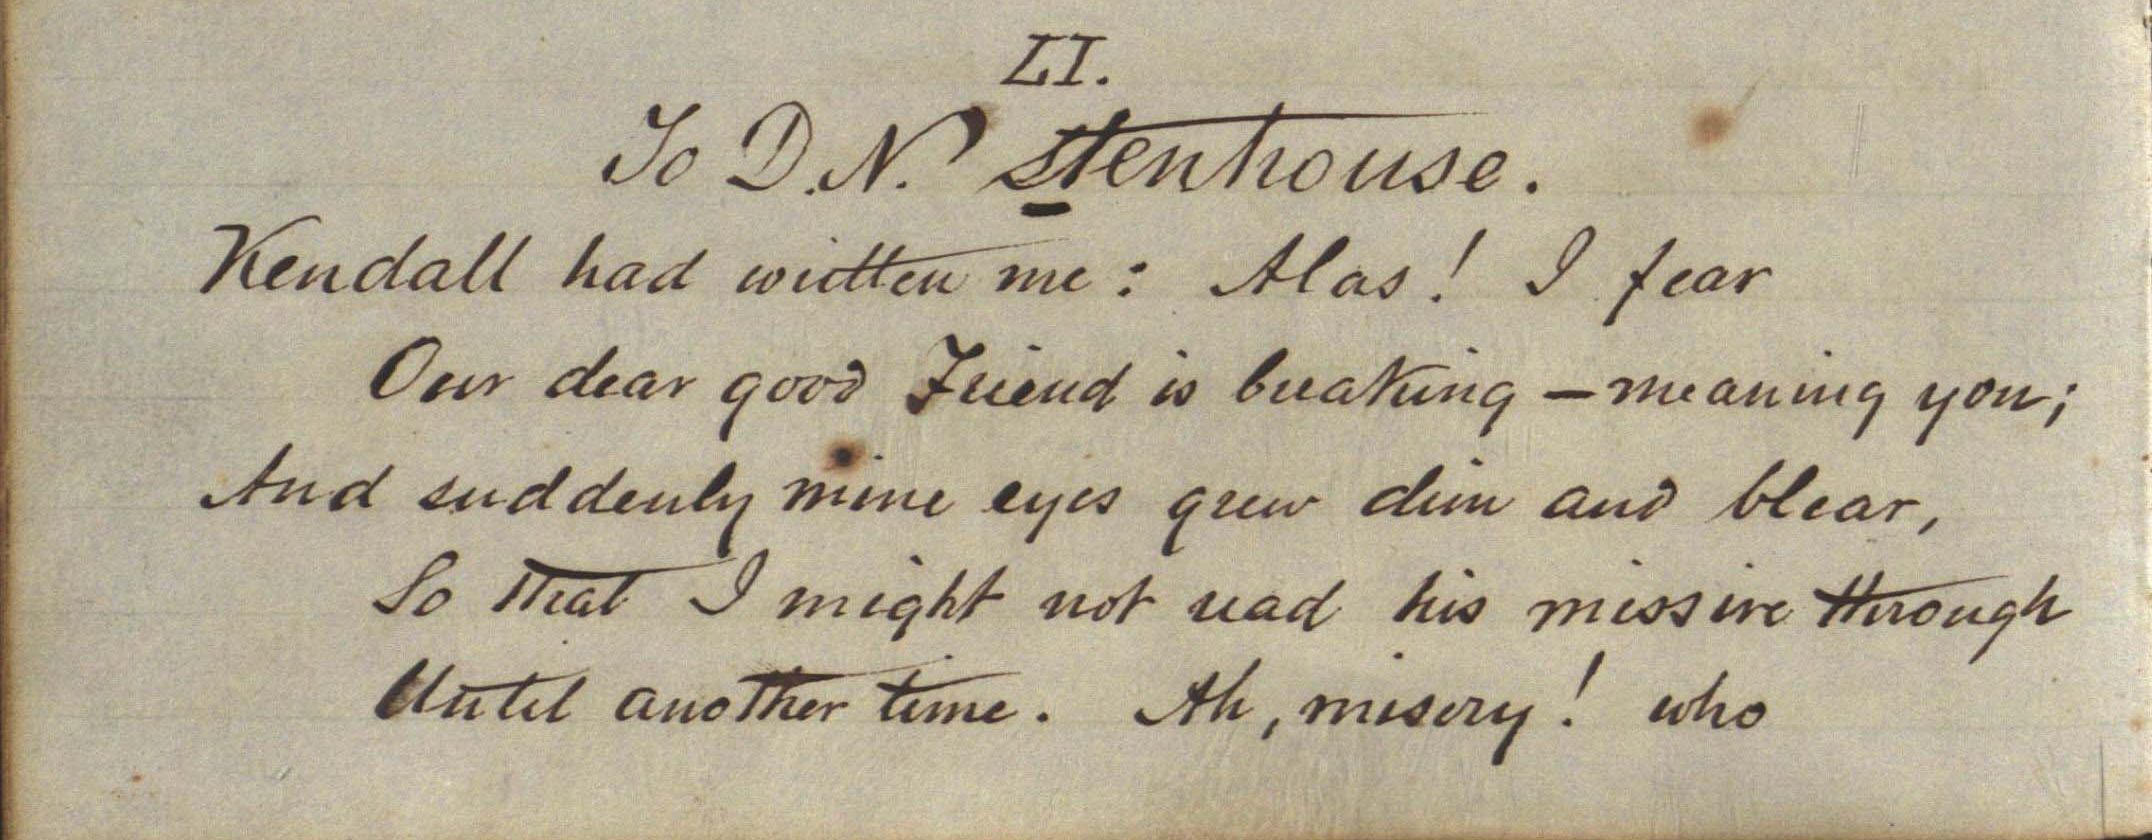 LI.
To D. N. Stenhouse.
Kendall had written me: Alas! I fear
Our dear good Friend is breaking – meaning you;
And suddenly mine eyes grew dim and blear,
So that I might not read his missive through
Until another time. Ah, misery! who